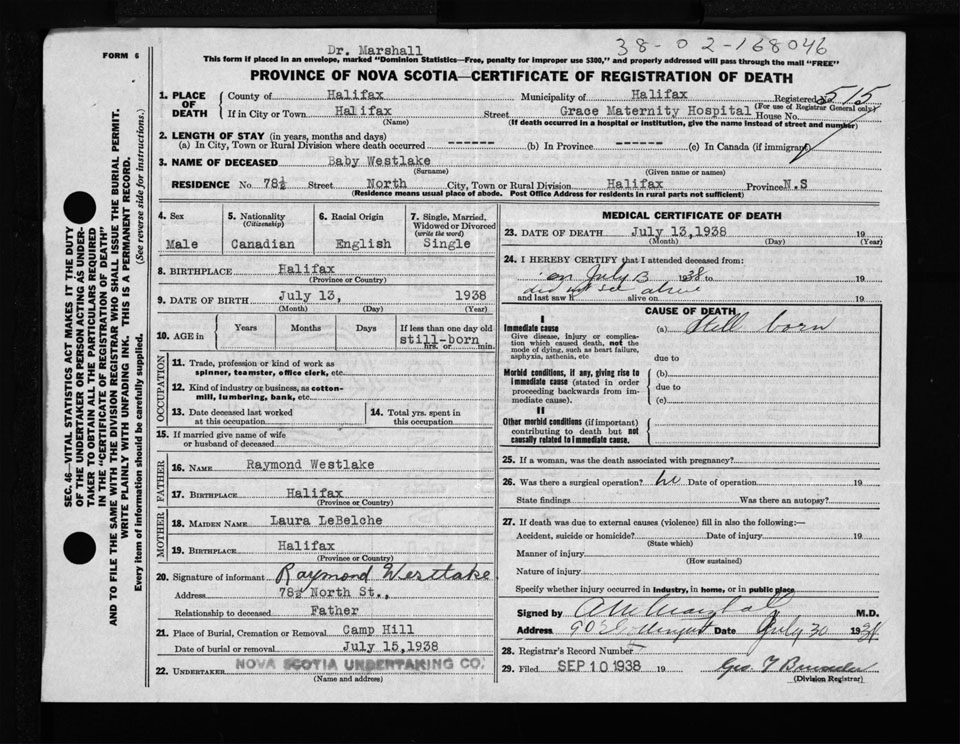 Dr. Marshall
38-02-168046
FORM 6
This form if placed in an envelope, marked "Dominion Statistics—Free, penalty for improper use $300," and properly addressed will pass through the mail "FREE"
PROVINCE OF NOVA SCOTIA—CERTIFICATE OF REGISTRATION OF DEATH
1. PLACE OF DEATH
County of Halifax Municipality of Halifax Registered No. 515
(For use of Registrar General only)
If in City or Town Halifax Street Grace Maternity Hospital House No.
(Name) (If death occurred in a hospital or institution, give the name instead of street and number)
2. LENGTH OF STAY (in years, months and days)
(a) In City, Town or Rural Division where death occurred ------ (b) In Province ------ (c) In Canada (if immigrant)
3. NAME OF DECEASED Baby Westlake
(Surname) (Given name or names)
RESIDENCE No. 78½ Street North City, Town or Rural Division Halifax Province N.S
(Residence means usual place of abode. Post Office Address for residents in rural parts not sufficient)
4. Sex Male
5. Nationality (Citizenship) Canadian
6. Racial Origin English
7. Single, Married, Widowed or Divorced (write the word) Single
8. BIRTHPLACE Halifax
(Province or Country)
9. DATE OF BIRTH July 13, 1938
(Month) (Day) (Year)
10. AGE in Years Months Days If less than one day old
still-born
hrs. or min.
OCCUPATION
11. Trade, profession or kind of work as spinner, teamster, office clerk, etc.
12. Kind of industry or business, as cotton-mill, lumbering, bank, etc.
13. Date deceased last worked at this occupation
14. Total yrs. spent in this occupation
15. If married give name of wife or husband of deceased
FATHER
16. NAME Raymond Westlake
17. BIRTHPLACE Halifax
(Province or Country)
MOTHER
18. MAIDEN NAME Laura LeBelche
19. BIRTHPLACE Halifax
(Province or Country)
20. Signature of informant Raymond Westlake
Address 78½ North St.,
Relationship to deceased Father
21. Place of Burial, Cremation or Removal Camp Hill
Date of burial or removal July 15,1938
22. UNDERTAKER NOVA SCOTIA UNDERTAKING CO.
(Name and address)
MEDICAL CERTIFICATE OF DEATH
23. DATE OF DEATH July 13,1938 19
(Month) (Day) (Year)
24. I HEREBY CERTIFY that I attended deceased from:
on July 13 1938 to 19
did not see alive
and last saw h alive on 19
CAUSE OF DEATH
I
Immediate cause (a) Still born
Give disease, injury or complication which caused death, not the mode of dying, such as heart failure, asphyxia, asthenia, etc
due to
Morbid conditions, if any, giving rise to immediate cause (stated in order proceeding backwards from immediate cause).
(b)
due to
(c)
II
Other morbid conditions (if important) contributing to death but not causally related to immediate cause.
25. If a woman, was the death associated with pregnancy?
26. Was there a surgical operation? no Date of operation 19
State findings Was there an autopsy?
27. If death was due to external causes (violence) fill in also the following:—
Accident, suicide or homicide? Date of injury 19
(State which)
Manner of injury
(How sustained)
Nature of injury
Specify whether injury occurred in industry, in home, or in public place
Signed by M.D.
Address Date July 30 1938
28. Registrar's Record Number
29. Filed SEP 10 1938 19 Geo
(Division Registrar)
SEC. 46—VITAL STATISTICS ACT MAKES IT THE DUTY
OF THE UNDERTAKER OR PERSON ACTING AS UNDER-
TAKER TO OBTAIN ALL THE PARTICULARS REQUIRED
IN THE "CERTIFICATE OF REGISTRATION OF DEATH"
AND TO FILE THE SAME WITH THE DIVISION REGISTRAR WHO SHALL ISSUE THE BURIAL PERMIT.
WRITE PLAINLY WITH UNFADING INK. THIS IS A PERMANENT RECORD.
Every item of information should be carefully supplied. (See reverse side for instructions.)